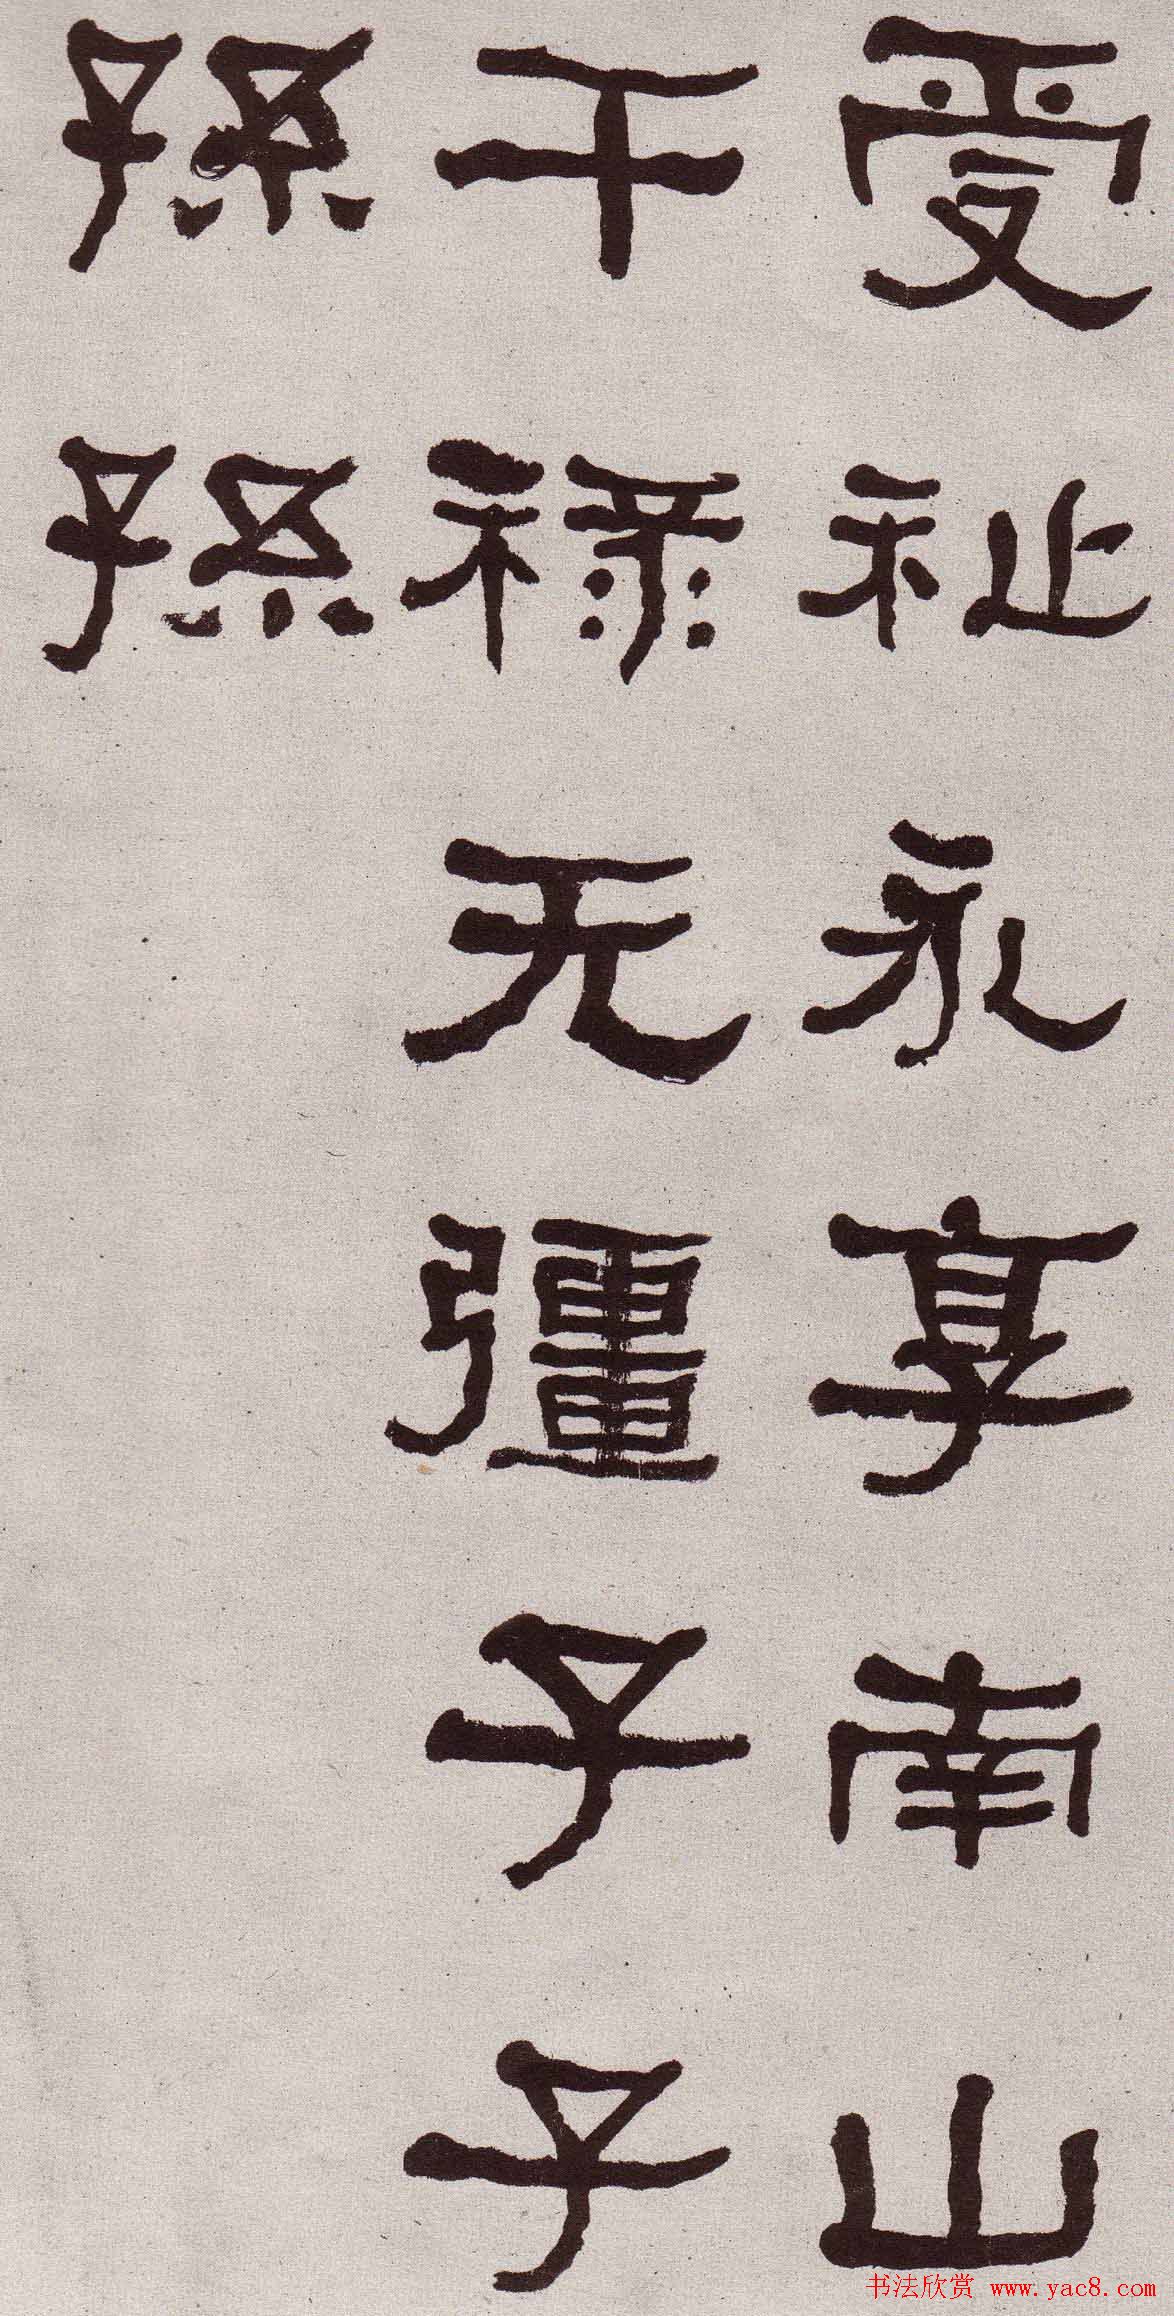 受祉永享南山
干祿无彊子子
孫孫
书法欣赏 www.yac8.com